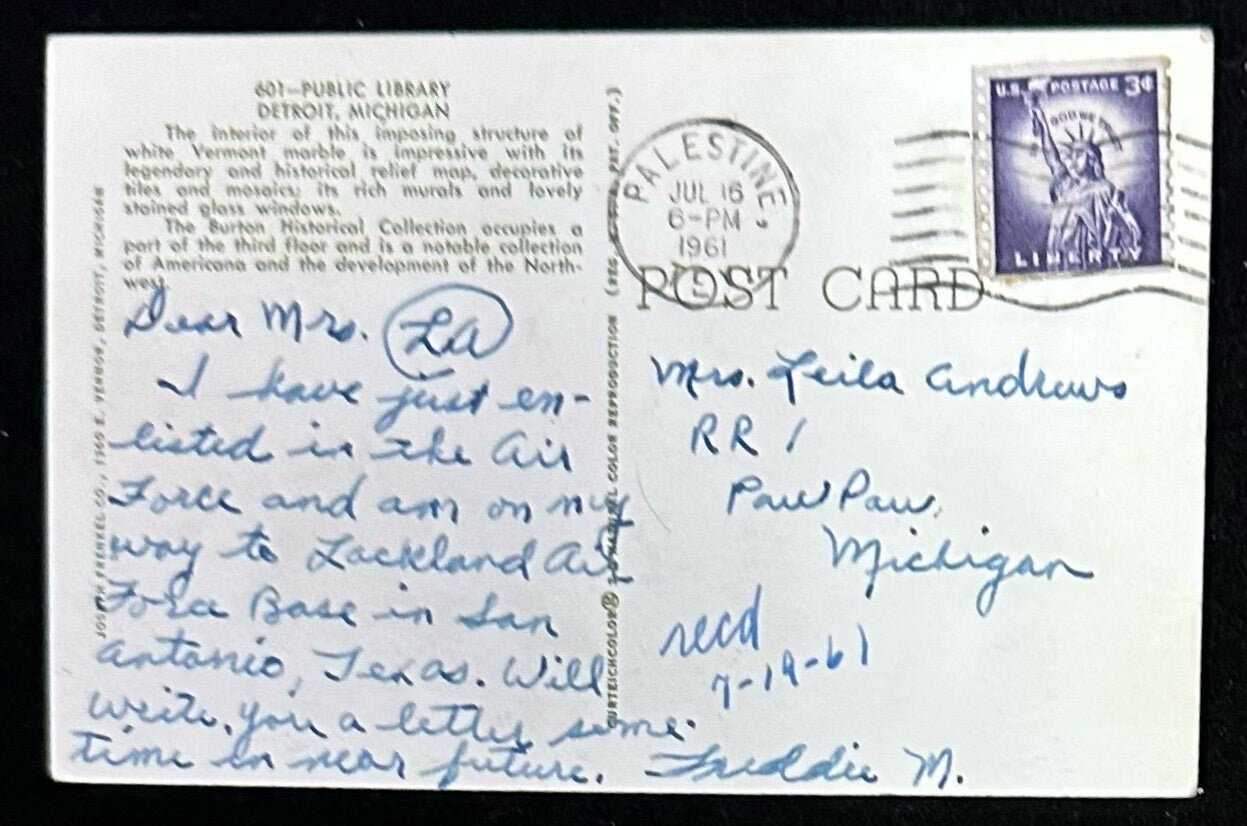 601—PUBLIC LIBRARY
DETROIT, MICHIGAN
The interior of this imposing structure of
white Vermont marble is impressive with its
legendary and historical relief map, decorative
tiles and mosaics; its rich murals and lovely
stained glass windows.
The Burton Historical Collection occupies a
part of the third floor and is a notable collection
of Americana and the development of the North-
west.
Dear Mrs. LA
I have just en-
listed in the Air
Force and am on my
way to Lackland Air
Force Base in San
Antonio, Texas. Will
write you a letter some-
time in near future. Freddie M.
JOSEPH FRENKEL CO., E. VERNOR, DETROIT, MICHIGAN
CURTEICHCOLOR® NATURAL COLOR REPRODUCTION (REG. U.S.A. PAT. OFF.)
PALESTINE
JUL 16
6-PM
1961
POST CARD
U.S. POSTAGE 3¢
IN GOD WE TRUST
LIBERTY
Mrs. Leila Andrews
RR 1
Paw Paw,
Michigan
recd
7-19-61